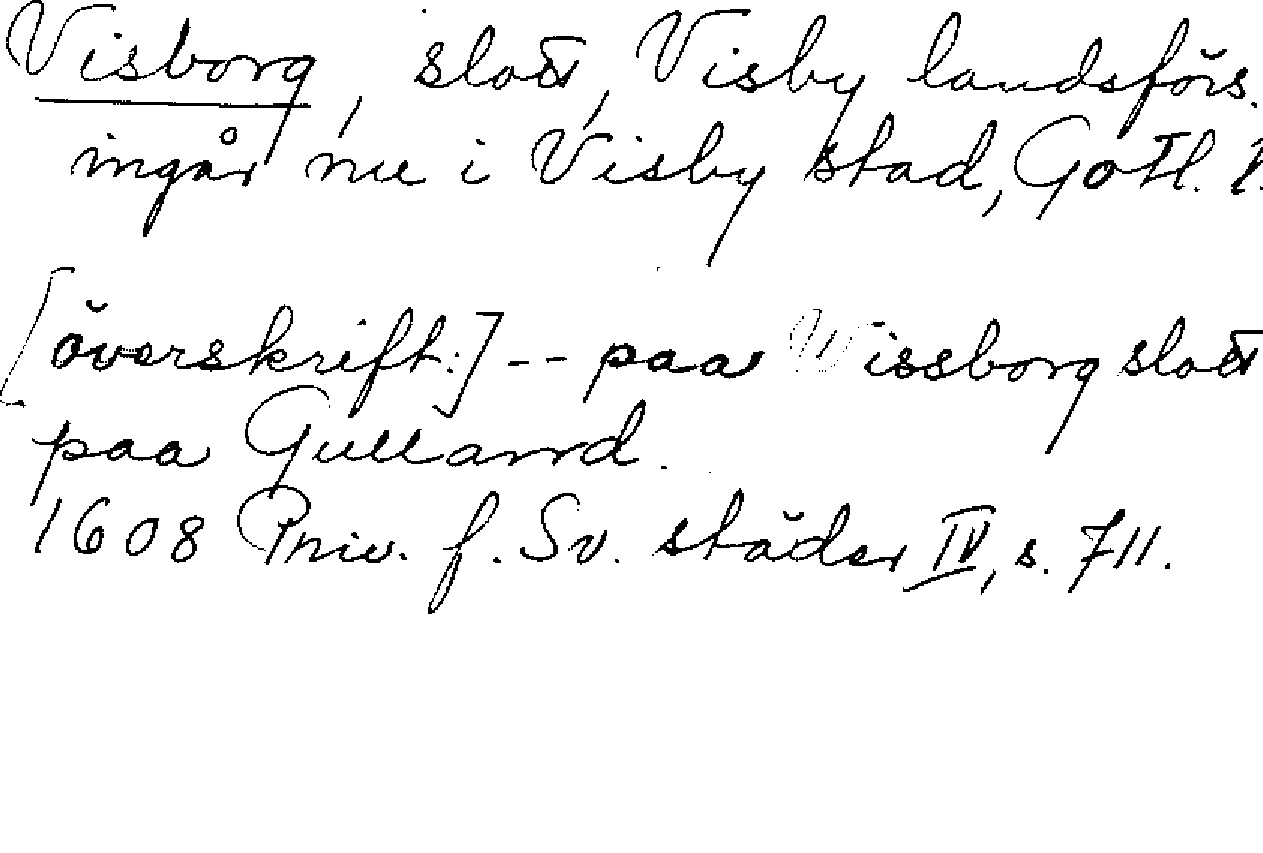 Visborg, slott, Visby landsförs.
ingår nu i Visby stad, Gotl. l.
[överskrift:] -- paa Wissborg slott
paa Gulland.
1608 Priv. f. Sv. städer IV, s. 711.